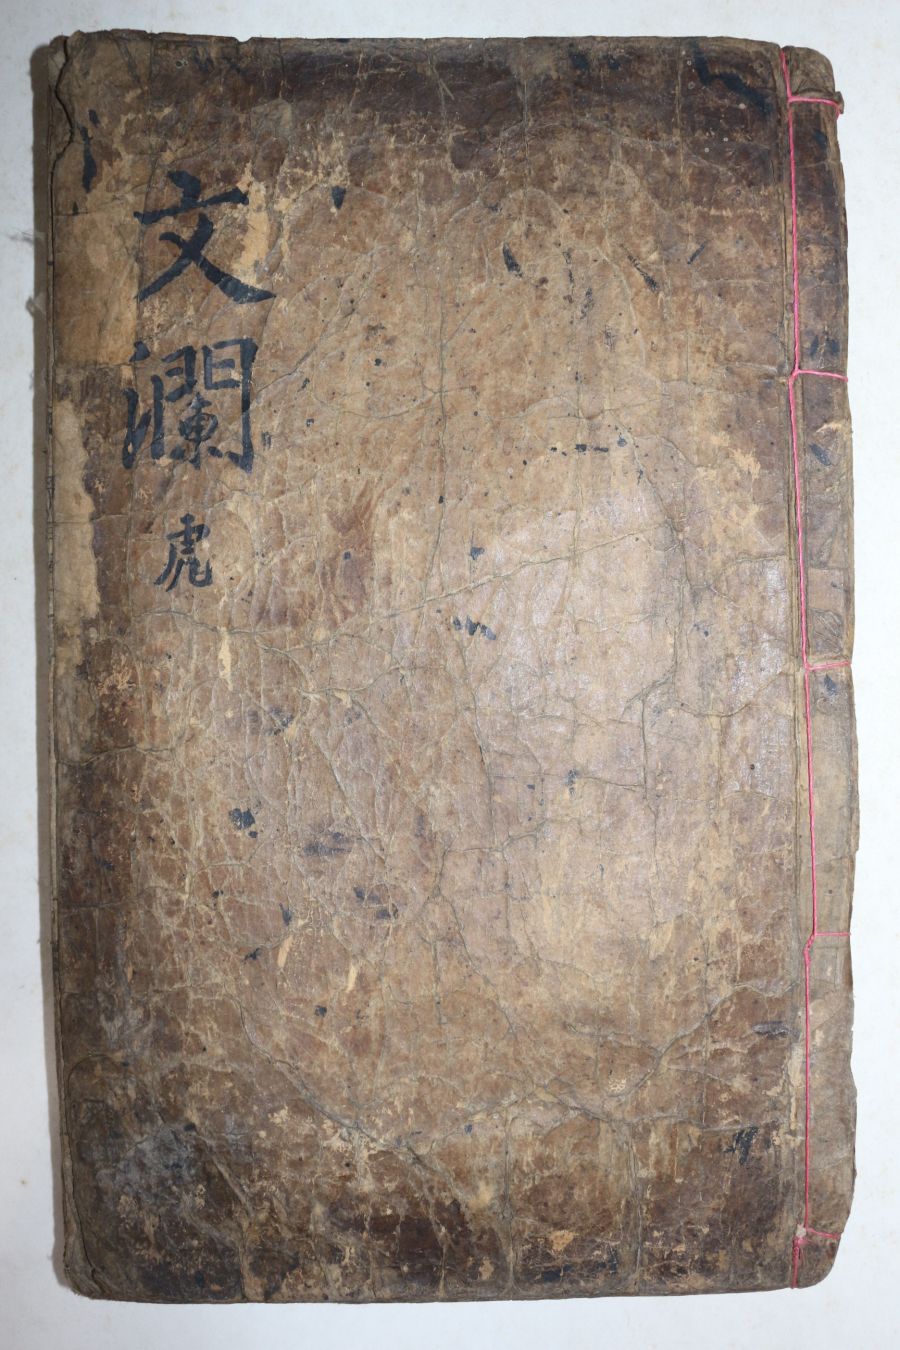 文瀾
虎